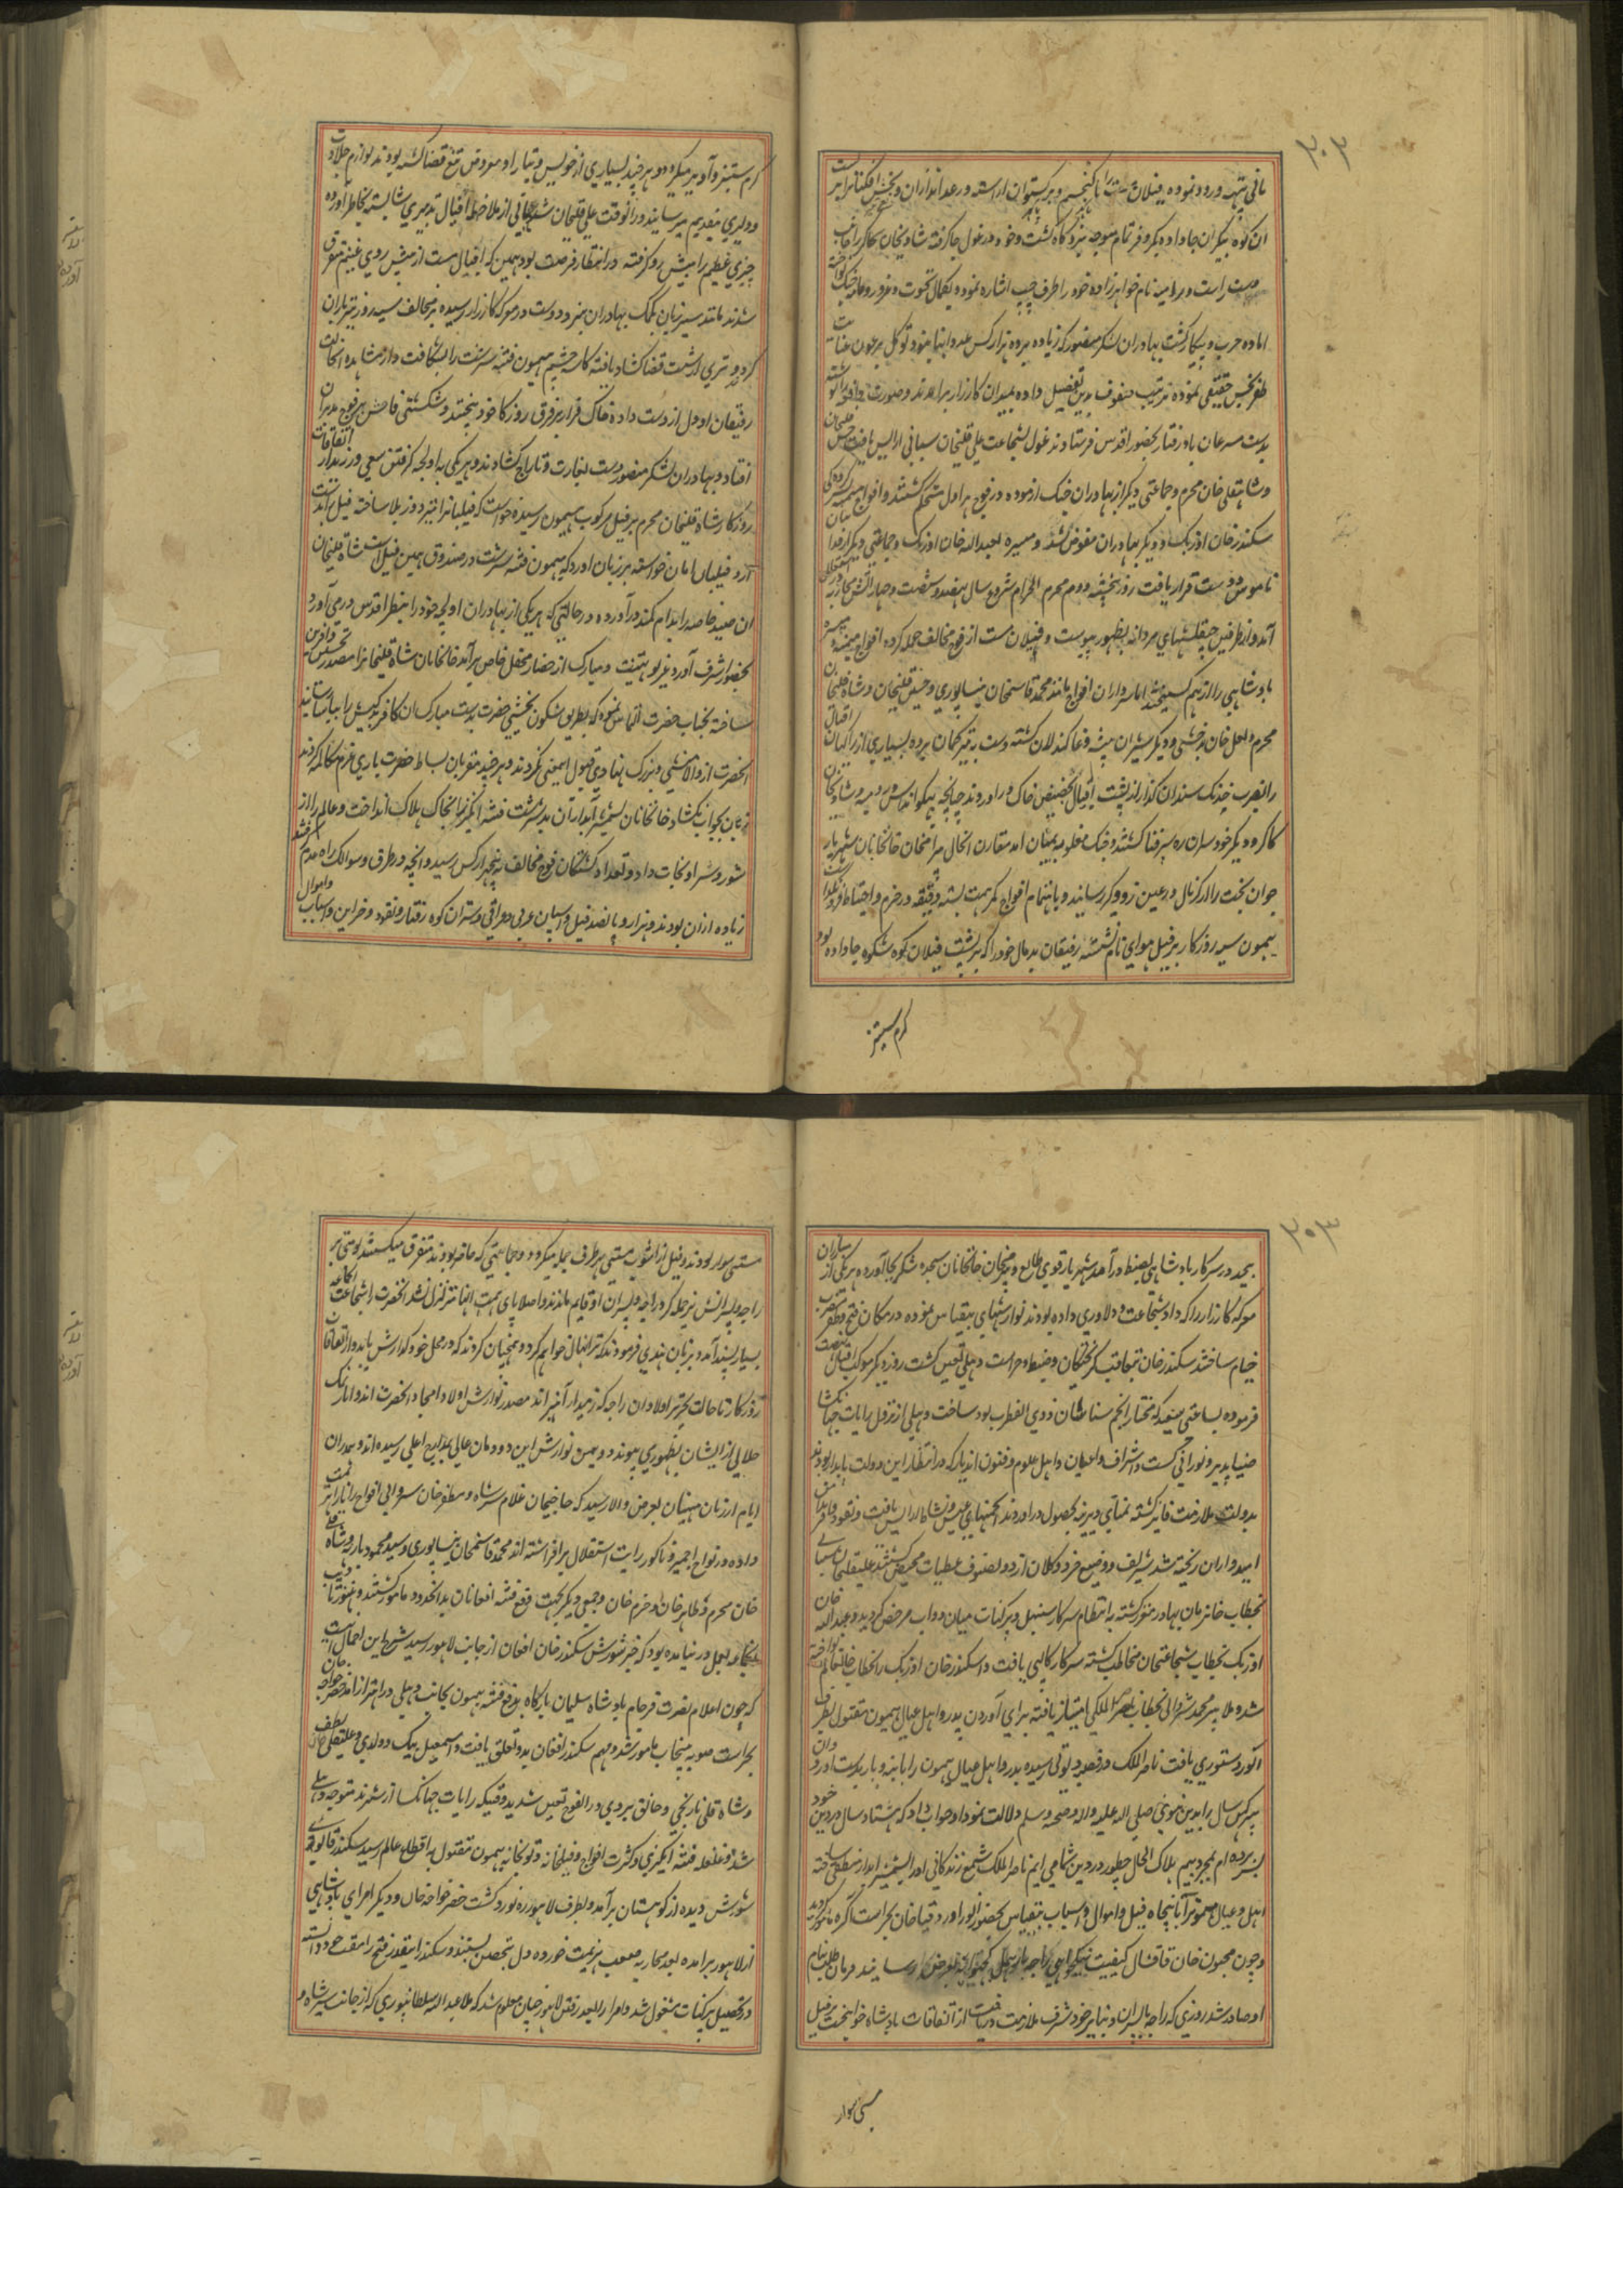 ۳۰۳
بانی پتهه ورود نموده فیلان مست را کنجیم و برکستوان اراسته و رعد اندازان و تخش افکنانرا بر پشت
ان کوه پیکران جا داده بکر و فر تمام متوجه نبردکاه کشت و خود در غول جا کرفته شادیخان کاکر را جانب
دست راست و برامیه نام خواهرزاده خود را طرف چپ اشاره نموده بکمال نخوت و غرور
اماده حرب و پیکار کشت بهادران لشکر منصور که زیاده بر ده هزار کس نبودند توکل بر عون عنایت
ظفربخش حقیقی نموده ترتیب صفوف بدین تفصیل داده بمیدان کارزار برامدند و صورت واقعه را نوشته
بدست مسرعان بادرفتار بحضور اقدس فرستادند غول بشجاعت علی قلیخان سیبانی ارایش یافت حسین قلیخان
و شاهقلی خان محرم و جماعتی دیکر از بهادران جنک ازموده در فوج هراول متحکم کشتند و افواج میمنه بسرکردکی
سکندر خان اوزبک و دیکر بهادران مفوض شد و میسره بعبدالله خان اوزبک و جماعتی دیکر از فدائیان
ناموس دوست قرار یافت روز پنجشنبه دوم محرم الحرام شروع سال نهصد و شصت و چهار اتش محاربه در اشتعال
آمد و از طرفین چپقلشهای مردانه بظهور پیوست و فیلان مست از فوج مخالف حمله کرده افواج میمنه و میسره
بادشاهی را از هم کسیختند اما سرداران افواج مانند محمد قاسم خان نیشاپوری و حسین قلیخان و شاه قلیخان
محرم و لعل خان بدخشی و دیکر شیران بیشه وغا کندلان کشته دست به تیر و کمان برده بسیاری از راکبان
را بضرب خدنک سندان کذار از پشت افیال بحضیض خاک در اوردند چنانچه بهکوانداس و میه و شادیخان
کاکر و دیکر خودسران ره سپر فنا کشتند و جنک مغلوبه بمیان امد مقارن اینحال میر امنحان خانخانان شهریار
جوان بخت را از کرنال در عین زد و کیر رسانید و باهتمام افواج کمر همت بسته دقیقه در حزم و احتیاط فرو نکذاشت
هیمون سیه روزکار بر فیل هوای نام نشسته رفیقان بدمال خود را که بر پشت فیلان کوه شکوه جا داده بود
کرم ستیز
کرم ستیز و آویز میکرد و هر چند بسیاری از خویش و تبار او معروض تیغ قضا کشته بودند لوازم جلادت
و دلیری بتقدیم میرسانید در انوقت علی قلیخان شیبانی از ملاحظه اقبال تدبیری شایسته بخاطر آورده
چیزی عظیم را پیش رو کرفته در انتظار فرصت بود همین که افیال مست از پیش روی غنیم متفرق
شدند مانند شیر ژیان بکمک بهادران نبرد دوست در معرکه کارزار رسیده بر مخالف سیه روز تیرباران
کرد و تیری از شست قضا کشاد یافته کاسه چشم هیمون فتنه سرشت را بشکافت و از مشاهده اینحالت
رفیقان او دل از دست داده خاک فرار بر فرق روزکار خود بیختند و شکستی فاحش بر فوج مدبران
افتاد و بهادران لشکر منصور دست بغارت و تاراج کشادند و هر یکی به اولجه کرفتن سعی ورزید از اتفاقات
روزکار شاه قلیخان محرم بر فیل مرکوب هیمون رسیده خواست که فیلبانرا بتیر دوز بلا ساخته فیل را بدست
آرد فیلبان امان خواسته بر زبان اورد که هیمون فتنه سرشت در صندوق همین فیل است شاه قلیخان
ان صید خاصه را بدام کمند درآورده در حالتی که هر یکی از بهادران اولجه خود را بنظر اقدس در می آورد
بحضور اشرف آورد غریو تهنیت و مبارک از حضار محفل خاص برآمد خانخانان شاه قلیخانرا مصدر تحسین و افرین
ساخته بجناب حضرت التماس نمود که بطریق شکون بخشی حضرت بدست مبارک ان کافر بدکیش را بیاسا رسانند
انحضرت از والامنشی و بزرک نهادی قبول اینمعنی نکردند و هر چند مقربان بساط حضرت یاری عزم مکالمه کردند
زبان بجواب نکشاد خانخانان بشمشیر آبدار ان بدسرشت فتنه انکیز را بخاک هلاک انداخت و عالم را از
شور و شر او نجات داد و تعداد کشتکان فوج مخالف پنجهزار کس رسید و انچه در طرق و مسالک راه عدم کرفتند
زیاده از ان بودند و هزار و پانصد فیل و اسپان عربی و عراقی و شتران کوه رفتار و نقود و خزاین و اسباب و اموال
۳۰۳
بیحد در سرکار بادشاهی بضبط درآمد شهریار قوی طالع و همچنان خانخانان سجده شکر بجا آورده هر یکی از یساران
معرکه کارزار را که داد شجاعت و دلاوری داده بودند نوازشهای بیقیاس نموده در مکان فتح و ظفر نصب
خیام ساختند سکندر خان بتعاقب کریختکان و ضبط و حراست دهلی تعین کشت روز دیکر موکب اقبال نهضت
فرموده بساعتی سعید که مختار انجم شناسان ذوی الفطرت بود ساخت دهلی از نزول رایات جهانکشا
ضیاپذیر و نورانی کشت و اشراف و اعیان و اهل علوم و فنون اندیار که در انتظار این دولت پایدار بودند
بدولت ملازمت فایز کشته تمنای دیرینه بحصول دراوردند انجمنهای عیش و نشاط ارایش یافت و نقود بدامن
امیدواران ریخته شد شریف و وضیع خرد و کلان از دو صنوف عطیات محتظ کشتند علیقلیخان سیبانی
بخطاب خانزمان بهادر مفتخر کشته به انتظام سرکار سنبهل و پرکنات میان دواب مرخص کردید و عبدالله خان
اوزبک بخطاب شجاعتخان مخاطب کشته سرکار کالپی یافت و اسکندر خان اوزبک را بخطاب خانعالم نواخته
شد و ملا پیر محمد شروانی بخطاب ناصرالملکی امتیاز یافته برای آوردن پدر و اهل عیال هیمون مقتول بطرف
الور دستوری یافت ناصرالملک در قصبه دیوتی رسیده پدر و اهل عیال هیمون را با بنه و بار بدست اورد و ان
پیر کهن سال را بدین نبوی صلی الله علیه واله وصحبه وسلم دلالت نمود او جواب داد که هشتاد سال در دین خود
بسر برده ام بمجرد بیم هلاک الحال چطور در دین شما در ایم ناصرالملک شمع زندکانی او را بشمشیر ابدار منطفی ساخته
اهل و عیال هیمونرا با پنجاه فیل و اموال و اسباب بیقیاس بحضور انور اورد و قیاخان بحراست اکره مامور کردید
و چون مجنون خان قاقشال کیفیت نیکوخواهی راجه بهارمل کچهواهه بعرض رسانید فرمان طلب بنام
او صادر شد روزی که راجه با پسران و تبار خود شرف ملازمت دریافت از اتفاقات بادشاه جوانبخت بر فیل
مستی سوار
مستی سوار بودند و فیل از اشوب مستی بهر طرف میل میکرد و جماعتی که حاضر بودند متفرق میکشتند نوبتی بر
راجه و پسرانش نیز حمله کرد راجه و پسران او قایم ماندند و اصلا پای همت انها متزلزل نشد انحضرت را شجاعت انجماعه
بسیار پسند آمد و بزبان هندی فرمودند که ترا نهال خواهم کرد و همچنان کردند که در محل خود کذارش یابد و از اتفاقات
روزکار تا حالت تحریر اولادان راجه که زمیندار آنبیر اند مصدر نوازش اولاد امجاد انحضرت اند و اثار نمک
حلالی از ایشان بظهور می پیوندد و به یمن نوازش این دودمان عالی بمدارج اعلی رسیده اند و همدران
ایام از زبان منهیان بعرض والا رسید که حاجیخان غلام شیر شاه و مظفر خان سروانی افواج را ترتیب
داده در نواح اجمیر و ناکور رایت استقلال برافراشته اند محمد قاسمخان نیشاپوری و سید محمود بارهه و شاه قلی
خان محرم و طاهر خان و خرم خان و جمعی دیکر بجهت دفع فتنه افغانان بدانحدود مامور کشتند و هنوز تادیب
انجماعه بعمل در نیامده بود که خبر شورش سکندر خان افغان از جانب لاهور رسید شرح این اجمال انست
که چون اعلام نصرت فرجام بادشاه سلیمان بارکاه بدفع فتنه هیمون بجانب دهلی در اهتزاز امد خضر خواجه خان
بحراست صوبه پنجاب مامور شد و مهم سکندر افغان بدو تعلق یافت و اسمعیل بیک دولدی و علیقلی خان
و شاه قلی نارنجی و خالق بیردی در الفوج تعین شدند وقتیکه رایات جهانکشا از سرهند متوجه دهلی
شد و غلغله فتنه انکیزی و کثرت افواج و فیلخانه و توپخانه هیمون مقتول باقطاع عالم رسید سکندر قابوی
شورش دیده از کوهستان برآمد و بطرف لاهور ره نورد کشت خضر خواجه خان و دیکر امرای بادشاهی
از لاهور برامده بعد محاربه صعب هزیمت خورده دل بتحصن بستند و سکندر اینقدر فتح را مغتنم دانسته
در تحصیل پرکنات مشغول شد و امرا را بعد رفتن لاهور چنان معلوم شد که ملا عبدالله سلطانپوری که از جانب شیر شاه